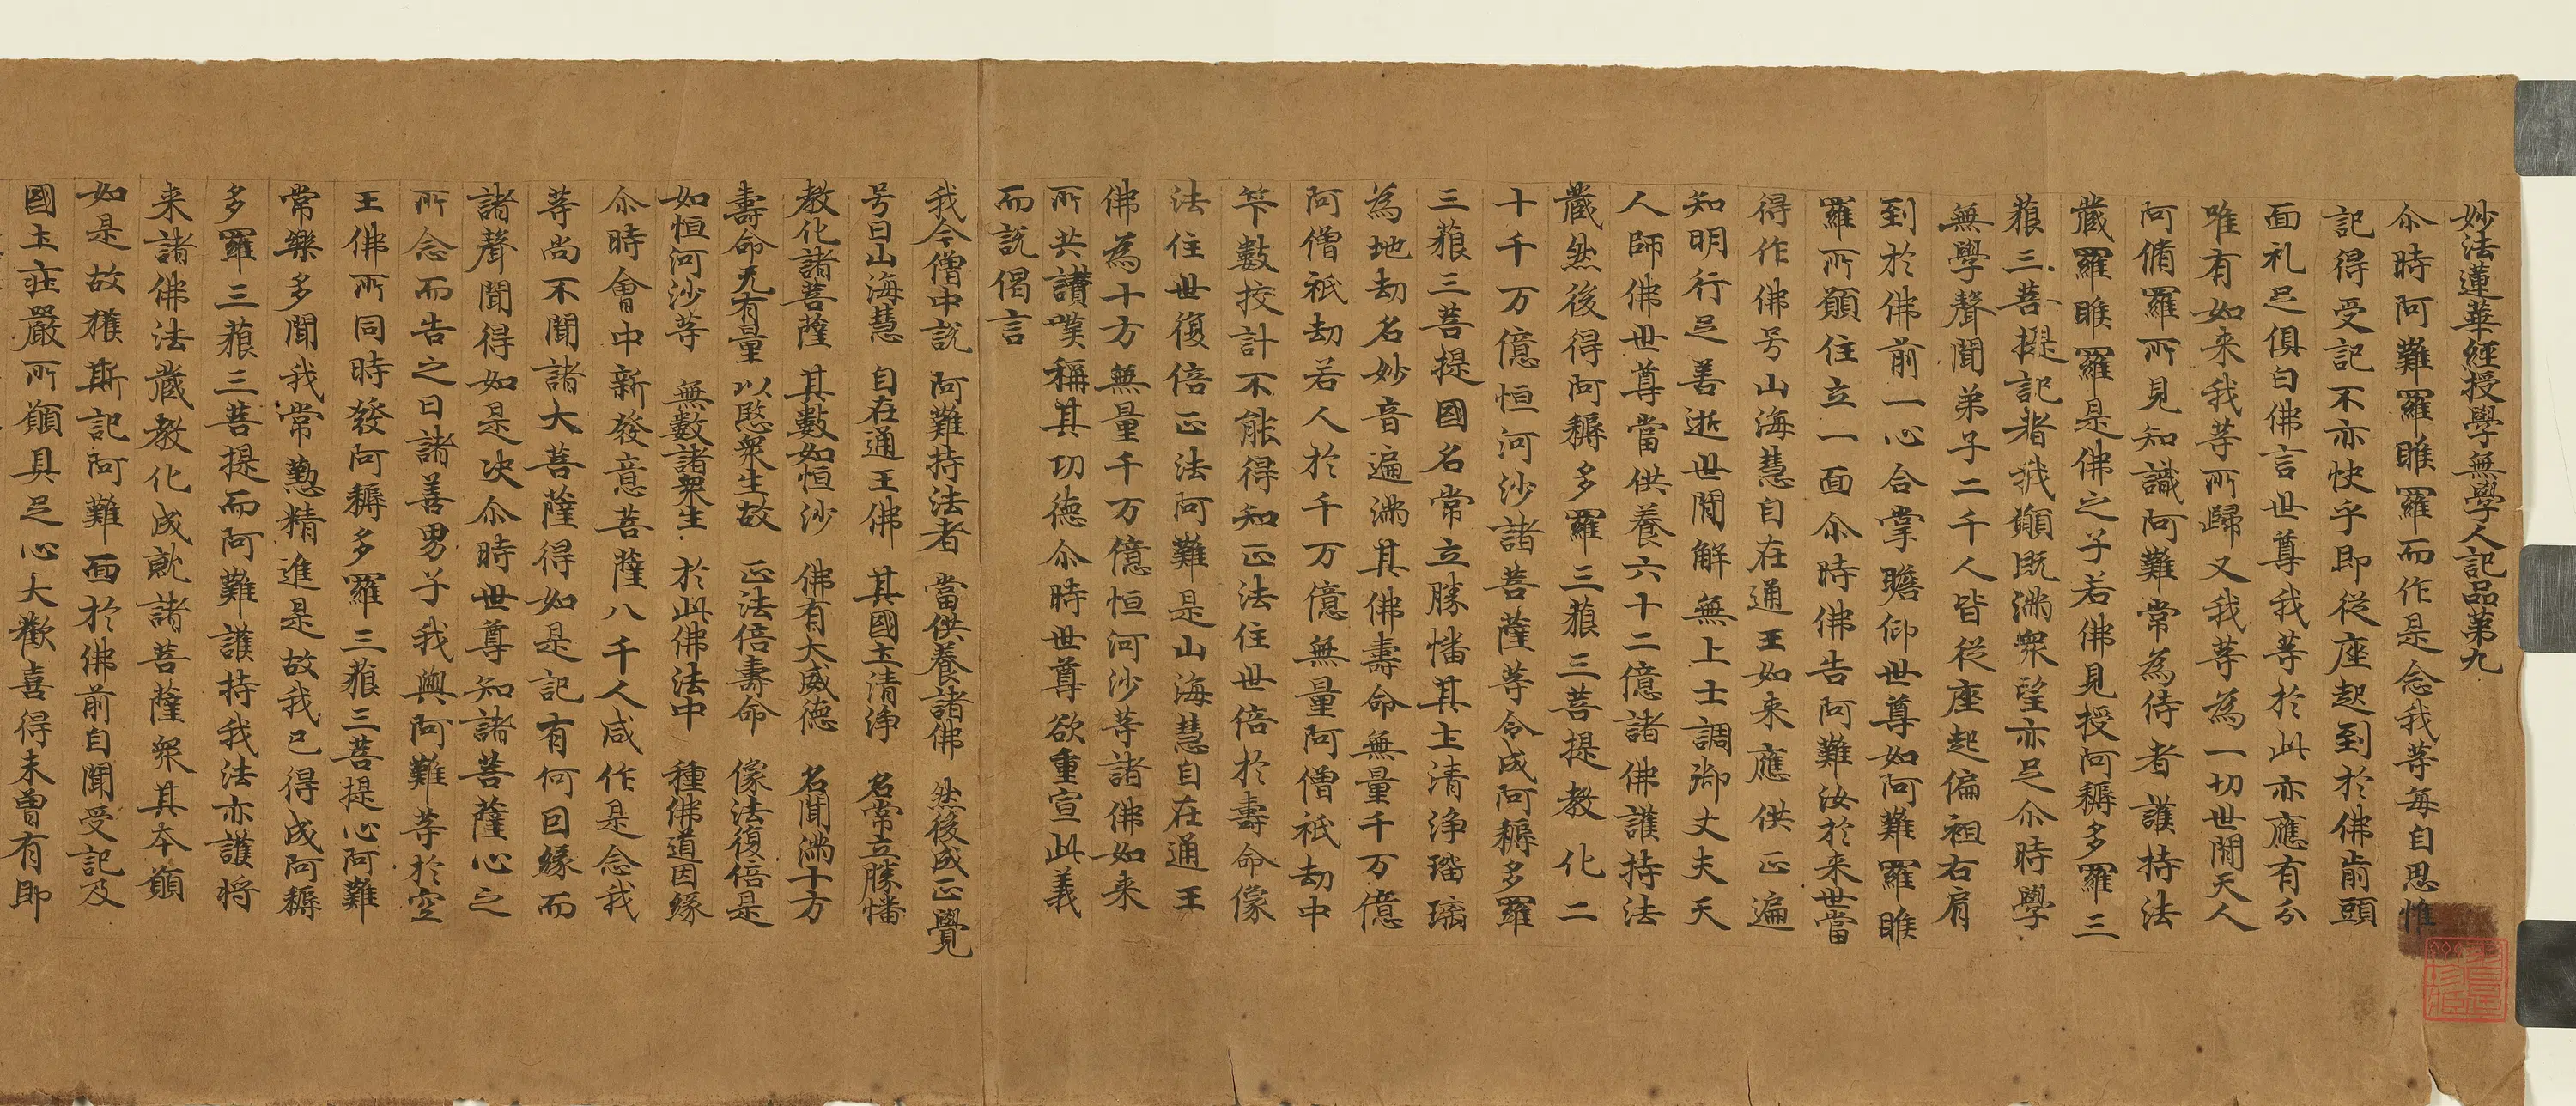 妙法蓮華經授學無學人記品第九
尒時阿難羅睺羅而作是念我等每自思惟
記得受記不亦快乎即從座起到於佛前頭
面礼足俱白佛言世尊我等於此亦應有分
唯有如来我等所歸又我等為一切世間天人
阿脩羅所見知識阿難常為侍者護持法
藏羅睺羅是佛之子若佛見授阿耨多羅三
藐三菩提記者我願既滿衆望亦足尒時學
無學聲聞弟子二千人皆從座起偏袒右肩
到於佛前一心合掌瞻仰世尊如阿難羅睺
羅所願住立一面尒時佛告阿難汝於来世當
得作佛号山海慧自在通王如来應供正遍
知明行足善逝世間解無上士調御丈夫天
人師佛世尊當供養六十二億諸佛護持法
藏然後得阿耨多羅三藐三菩提教化二
十千万億恒河沙諸菩薩等令成阿耨多羅
三藐三菩提國名常立勝幡其土清淨瑠璃
為地劫名妙音遍滿其佛壽命無量千万億
阿僧祇劫若人於千万億無量阿僧祇劫中
筭數挍計不能得知正法住世倍於壽命像
法住世復倍正法阿難是山海慧自在通王
佛為十方無量千万億恒河沙等諸佛如来
所共讃嘆稱其功德尒時世尊欲重宣此義
而説偈言
我今僧中説　阿難持法者　當供養諸佛　然後成正覺
号曰山海慧　自在通王佛　其國土清淨　名常立勝幡
教化諸菩薩　其數如恒沙　佛有大威德　名聞滿十方
壽命无有量　以愍衆生故　正法倍壽命　像法復倍是
如恒河沙等　無數諸衆生　於此佛法中　種佛道因緣
尒時會中新發意菩薩八千人咸作是念我
等尚不聞諸大菩薩得如是記有何因緣而
諸聲聞得如是决尒時世尊知諸菩薩心之
所念而告之曰諸善男子我與阿難等於空
王佛所同時發阿耨多羅三藐三菩提心阿難
常樂多聞我常懃精進是故我已得成阿耨
多羅三藐三菩提而阿難護持我法亦護将
来諸佛法藏教化成就諸菩薩衆其本願
如是故獲斯記阿難面於佛前自聞受記及
國土莊嚴所願具足心大歡喜得未曾有即